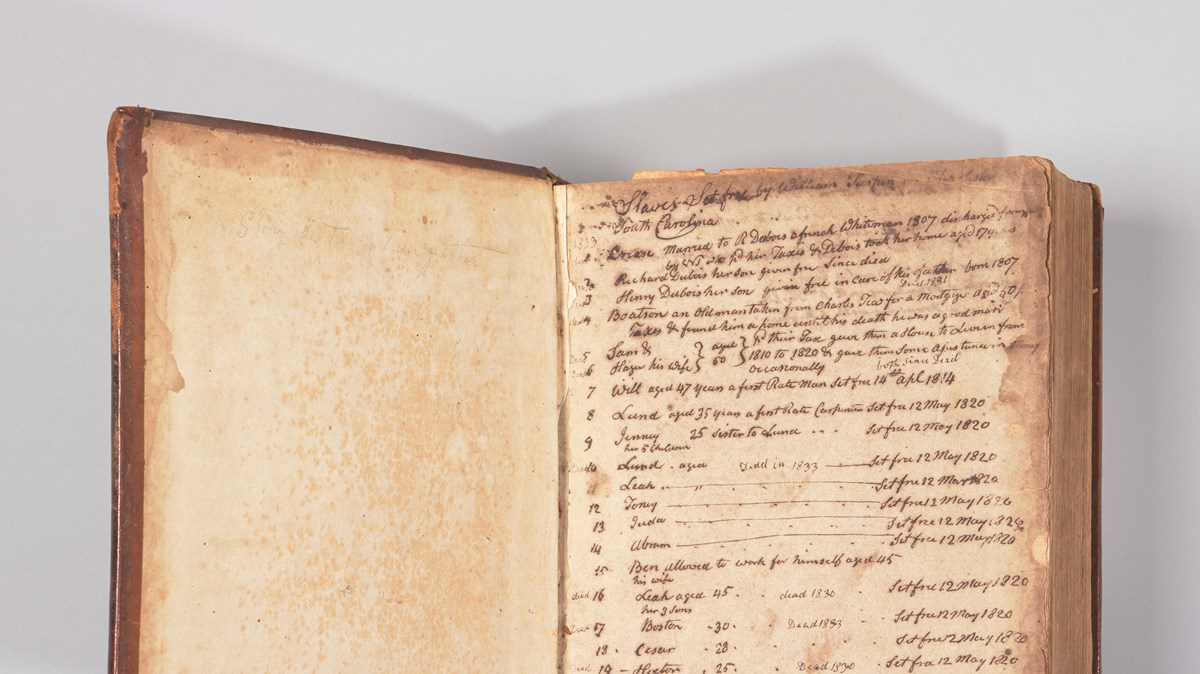 Slaves Set free by William Turpin
South Carolina
1833
married to R Dubois a french Whiteman 1807 discharged from
by WT who pd her Taxes & Dubois took her home aged
2 Richard Dubois her son given free Since died
3 Henry Dubois her son given free in care of his father born 1807
Dead 1831
4 Boatson an old man taken from Charles Tew for a Mortgage aged
Taxes & found him a home until his death he was a good man
5 Sam & } aged } pd their Tax gave them a House to Live in from
6 Hagar his wife } 60 } 1810 to 1820 & gave them Some
occasionally both Since Dead
7 Will aged 47 years a first Rate Man Set free 14th Apl 1814
8 Lund aged 35 years a first Rate Carpenter Set free 12 May 1820
9 Jenney 25 sister to Lund Set free 12 May 1820
her 5 Children
Dead 10 Lund aged Dead in 1833 Set free 12 May 1820
11 Leah Set free 12 May 1820
12 Toney Set free 12 May 1820
13 Juda Set free 12 May 1820
14 Abram Set free 12 May 1820
15 Ben allowed to work for himself aged 45
his wife
dead 16 Leah aged 45 dead 1830 Set free 12 May 1820
her 3 sons
Dead 17 Boston 30 Dead 1833 Set free 12 May 1820
18 Cesar 28 Set free 12 May 1820
Dead 19 25 Dead 1830 Set free 12 May 1820